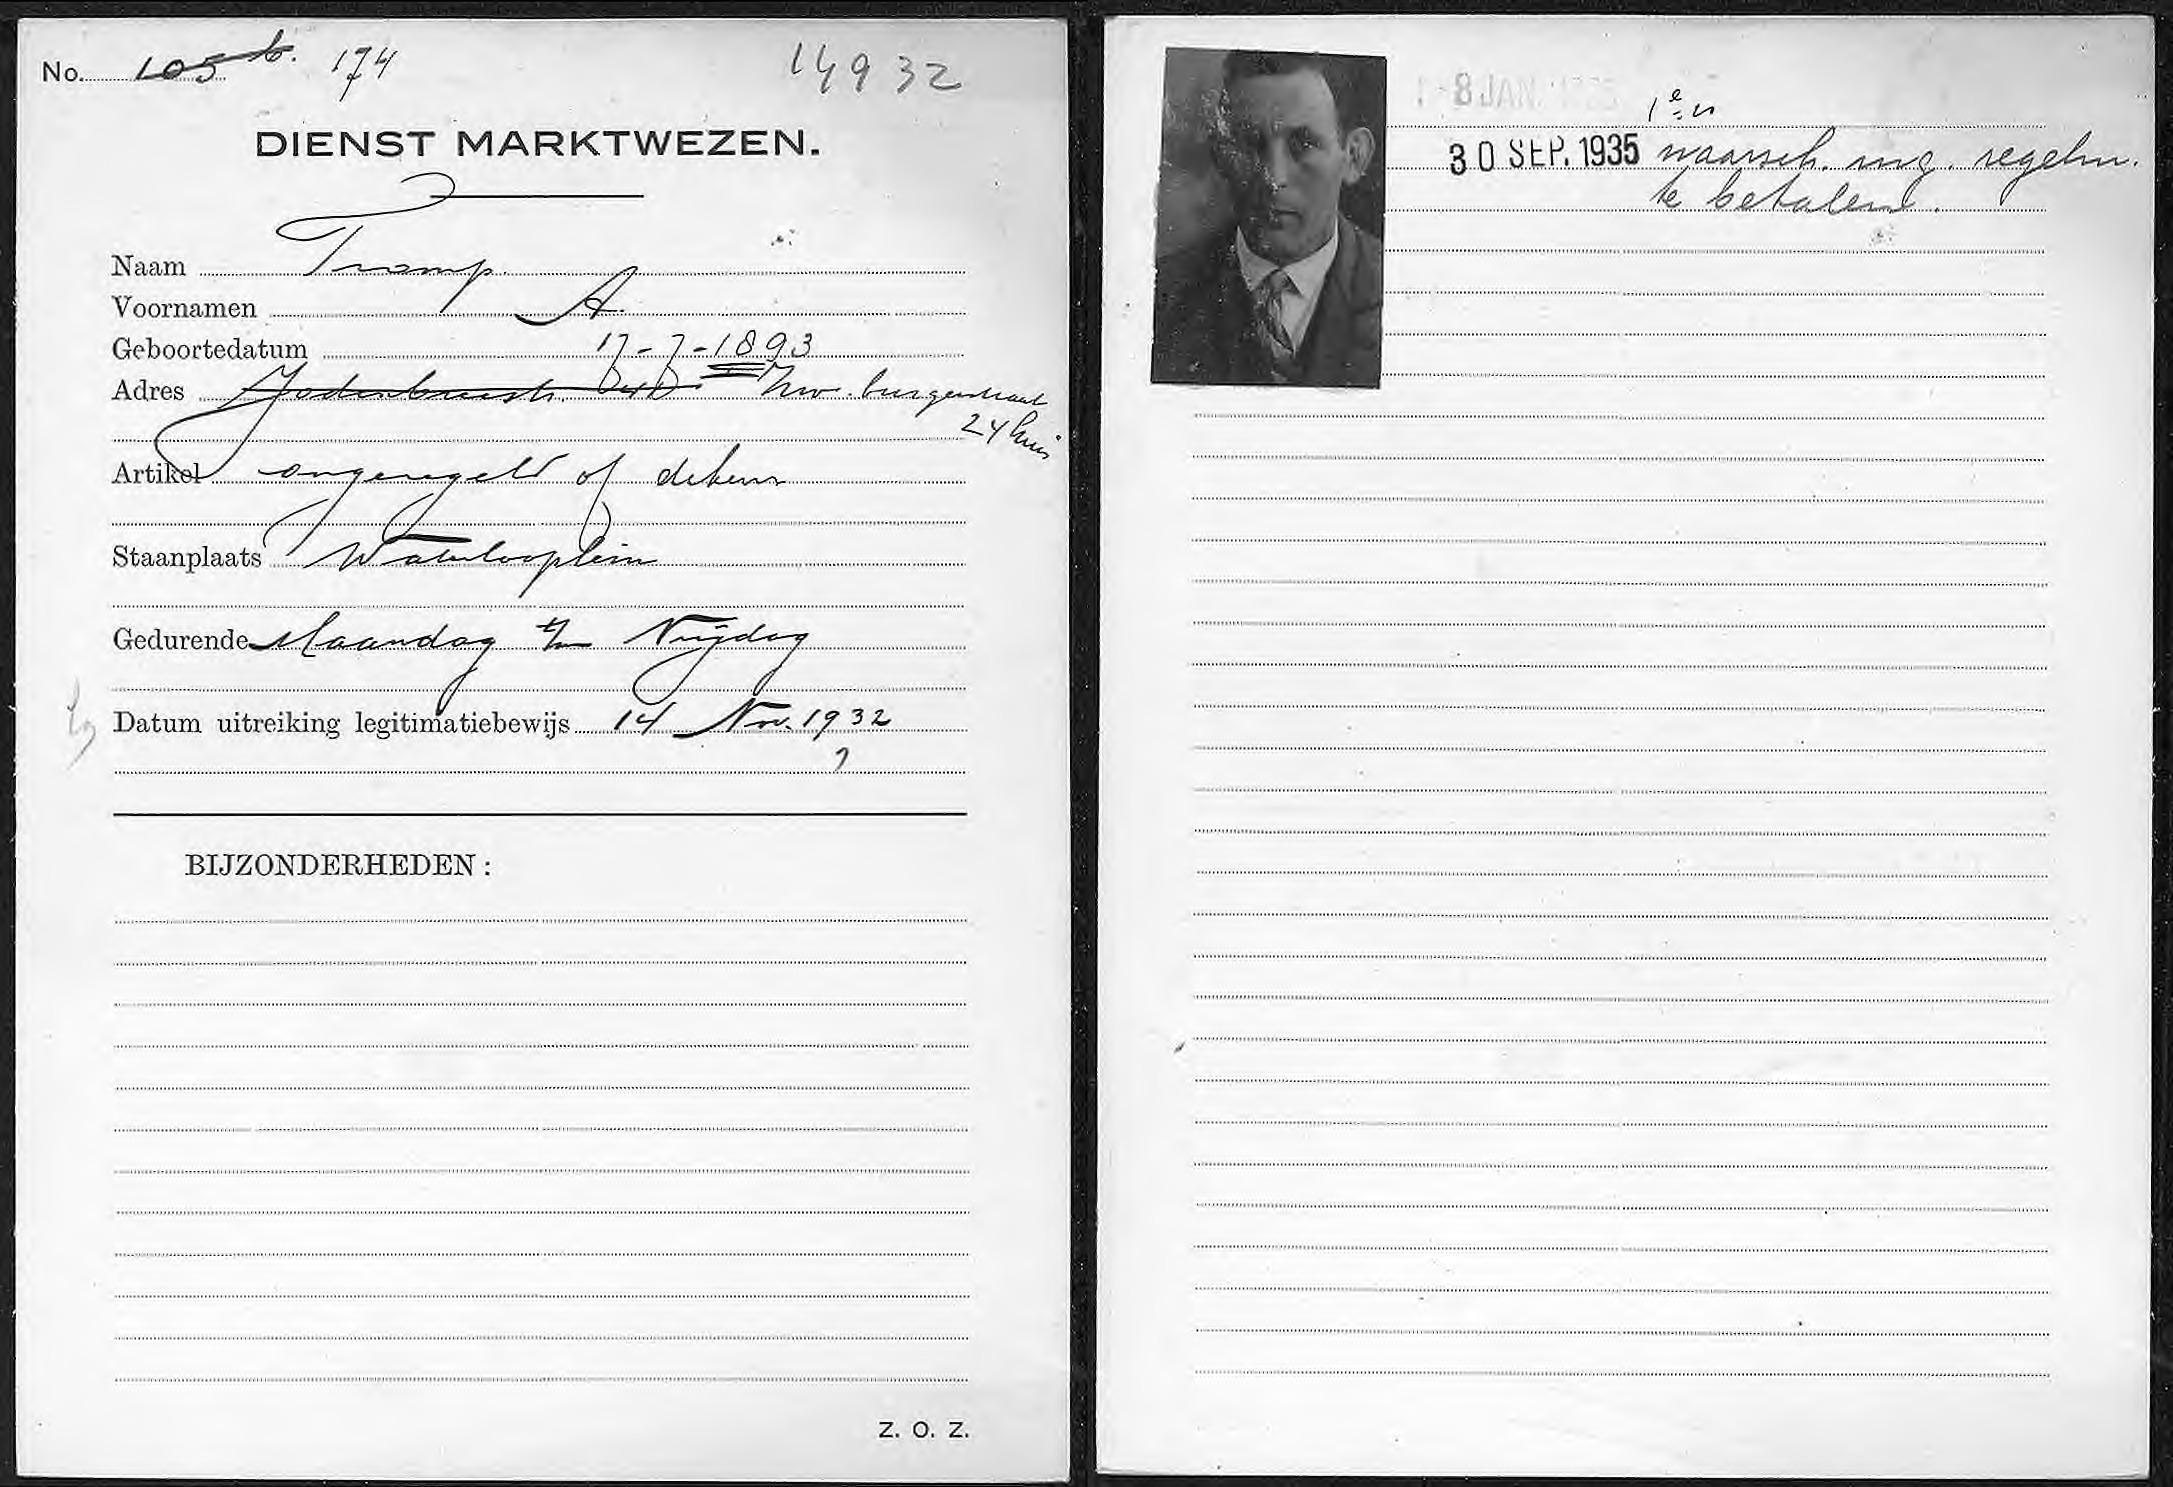 No. 105 b. 174 14932
DIENST MARKTWEZEN.
Naam Tromp.
Voornamen A.
Geboortedatum 17-7-1893
Adres Jodenbreestr. Nw. burgerstraat
24 huis
Artikel ongeregeld of dekens
Staanplaats Waterlooplein
Gedurende Maandag t/m Vrijdag
Datum uitreiking legitimatiebewijs 14 Nov. 1932
BIJZONDERHEDEN:
Z. O. Z.
8 JAN.
1e
30 SEP. 1935 waarsch. regelm.
te betalen.